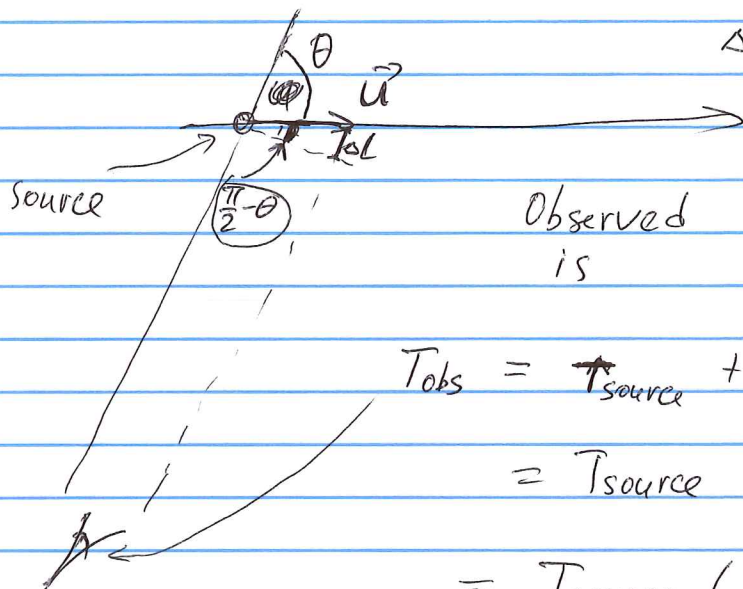 θ
Δ
φ u⃗
ΔL
source
π/2 - θ
Observed
is
T_obs = T_source +
= T_source
= T